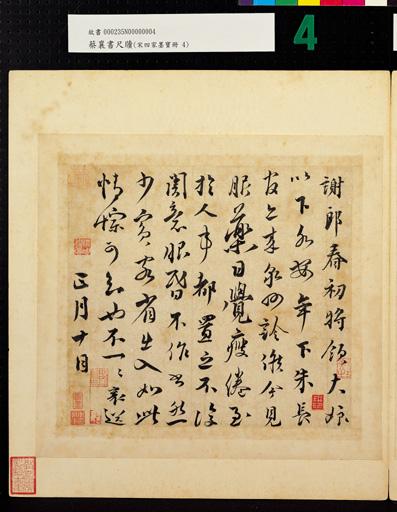 故書 000235N00000004
蔡襄書尺牘(宋四家墨寶冊 4)
4
謝郎春初將領大娘
以下各安年下朱長
官亦來泉州診候今見
服藥日覺瘦倦至
於人事都置之不復
關意眼昏不作書然
少賓客省出入如此
情悰可知也不一一襄送
正月十日